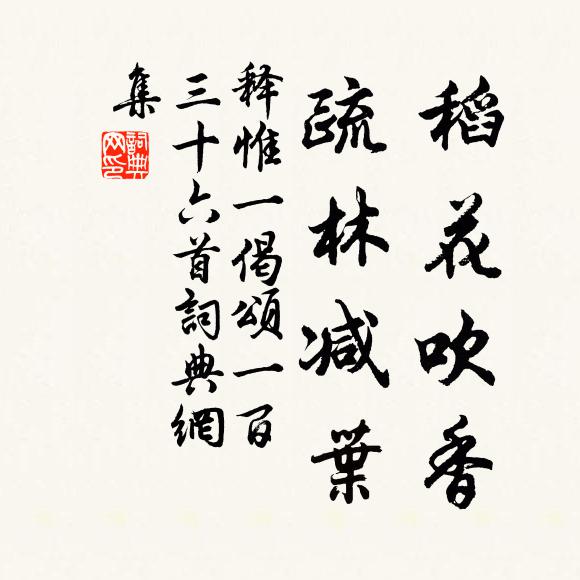 稻花吹香
疏林减葉
释惟一偈頌一百
三十六首詞典網
集
詞典網印